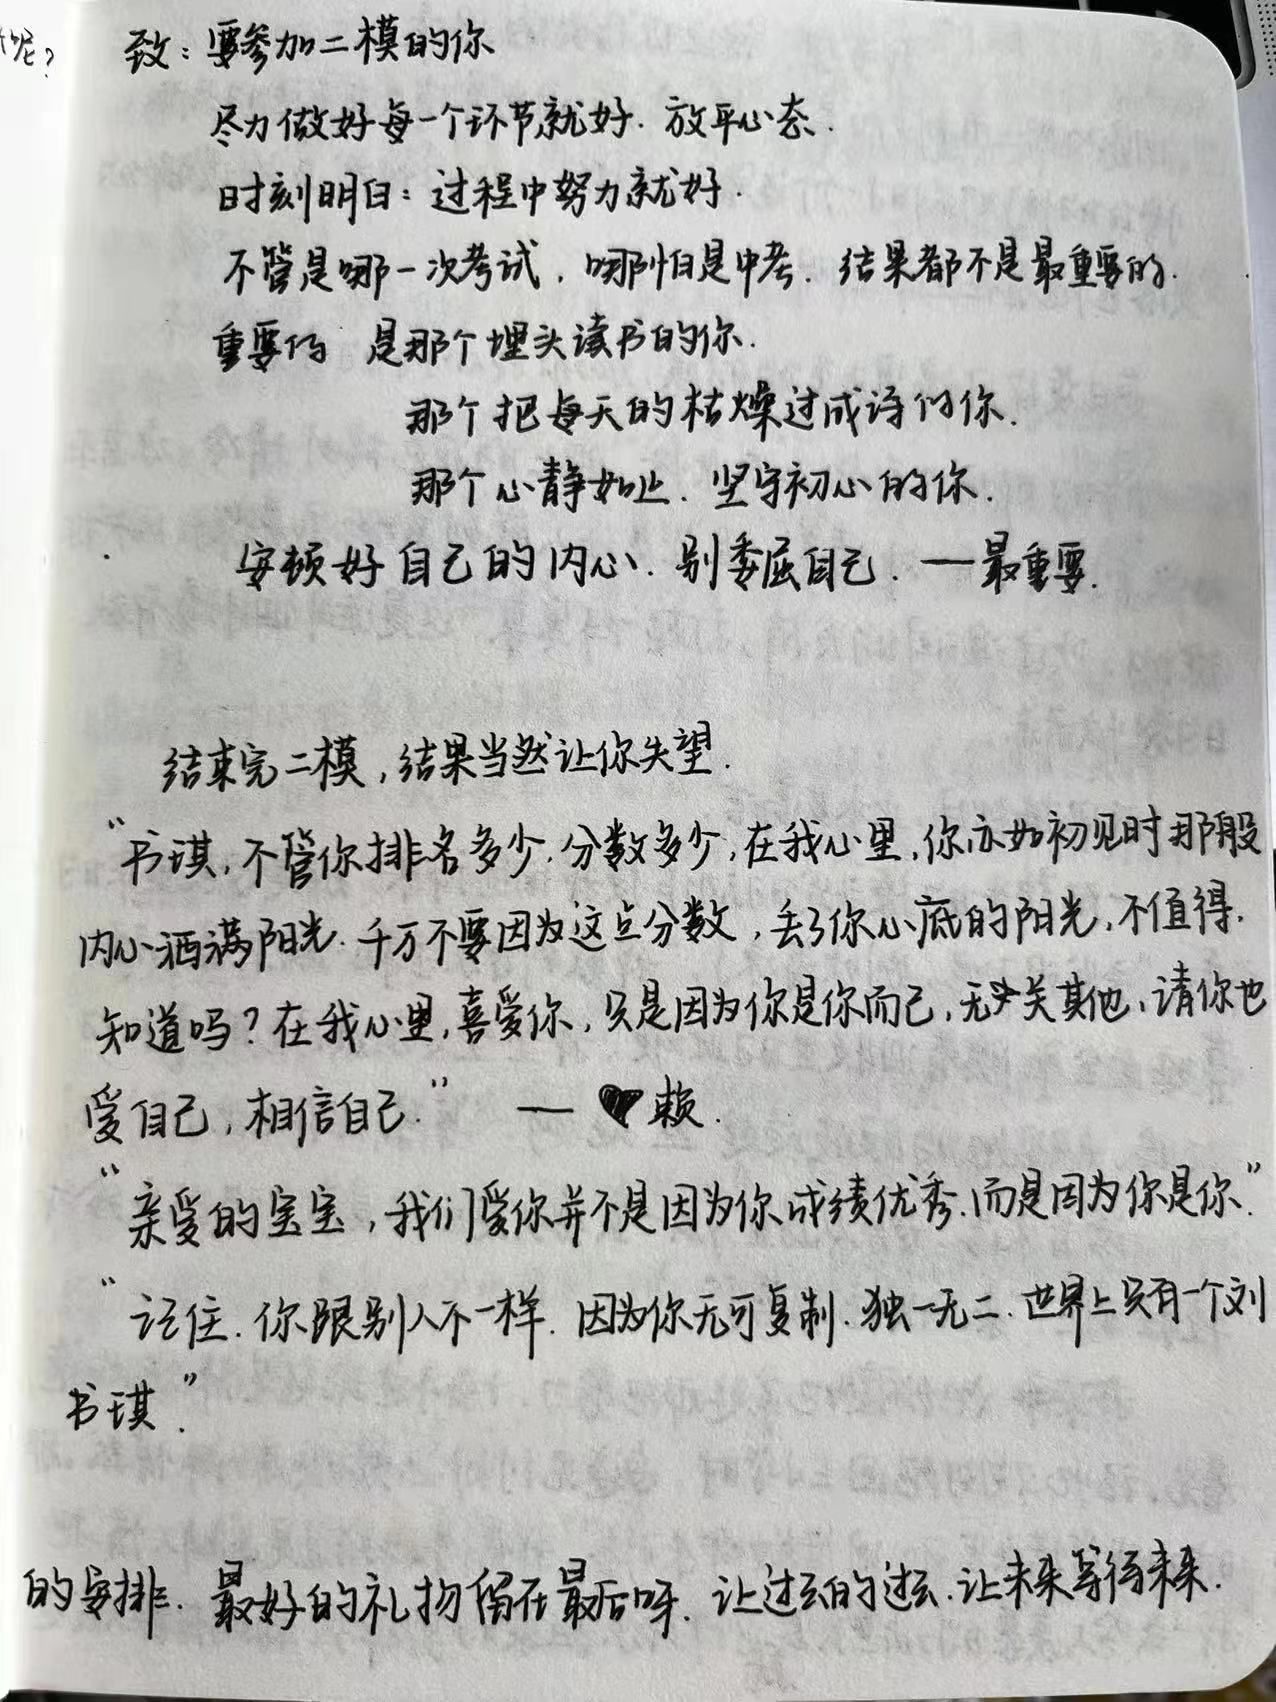 呢？
致：要参加二模的你
尽力做好每一个环节就好. 放平心态.
时刻明白：过程中努力就好.
不管是哪一次考试，哪怕是中考. 结果都不是最重要的.
重要的 是那个埋头读书的你.
那个把每天的枯燥过成诗的你.
那个心静如止. 坚守初心的你.
安顿好自己的内心. 别委屈自己. 一最重要.
结束完二模，结果当然让你失望.
“书琪，不管你排名多少. 分数多少，在我心里，你亦如初见时那般
内心洒满阳光. 千万不要因为这点分数，丢了你心底的阳光，不值得.
知道吗？在我心里，喜爱你，只是因为你是你而己，无关其他，请你也
爱自己，相信自己.” — ♥赖.
“亲爱的宝宝，我们爱你并不是因为你成绩优秀. 而是因为你是你”.
“记住. 你跟别人不一样. 因为你无可复制. 独一无二. 世界上只有一个刘
书琪.”
的安排. 最好的礼物留在最后呀. 让过去的过去. 让未来等待未来.